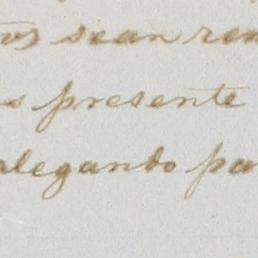 tos sean ren
s presente
alegando pa